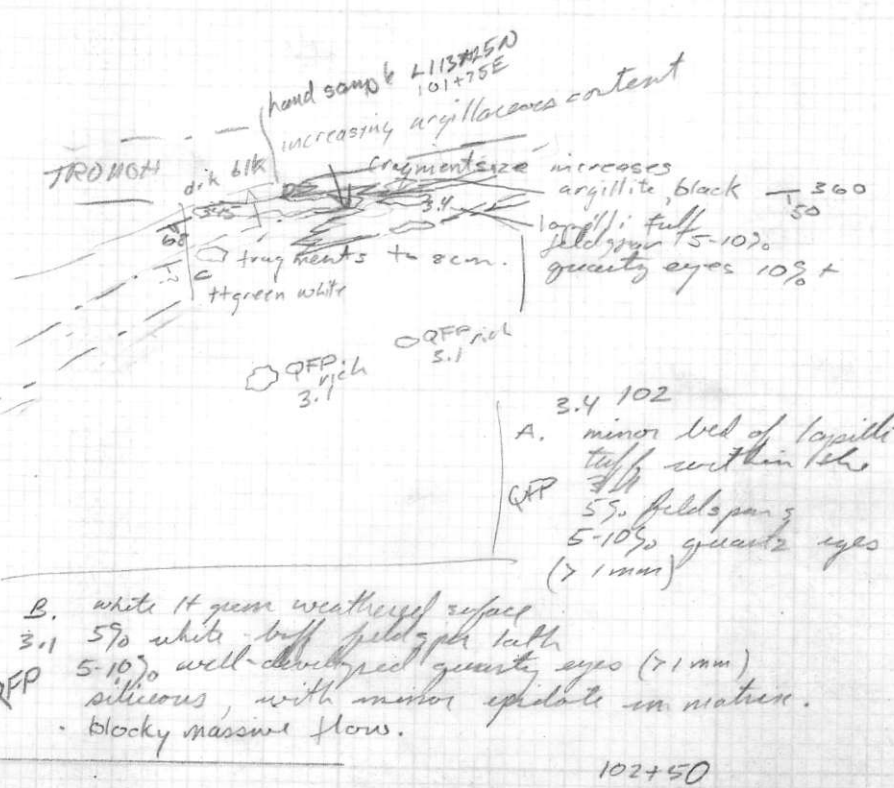 hand sample L113+25N
101+75E
increasing argillaceous content
TROUGH
drk blk
fragment size increases
argillite, black 360
50
3.4
lapilli tuff
feldspar 5-10%
quartz eyes 10% +
68
fragments to 8cm.
C
lt green white
QFP rich
3.1
QFP rich
3.1
3.4 102
A. minor bed of lapilli
tuff within the
QFP 3.4
5% feldspar
5-10% quartz eyes
(>1mm)
B. white lt green weathered surface
3.1 5% white-buff feldspar lath
QFP 5-10% well-developed quartz eyes (>1mm)
siliceous, with minor epidote in matrix.
blocky massive flow.
102+50